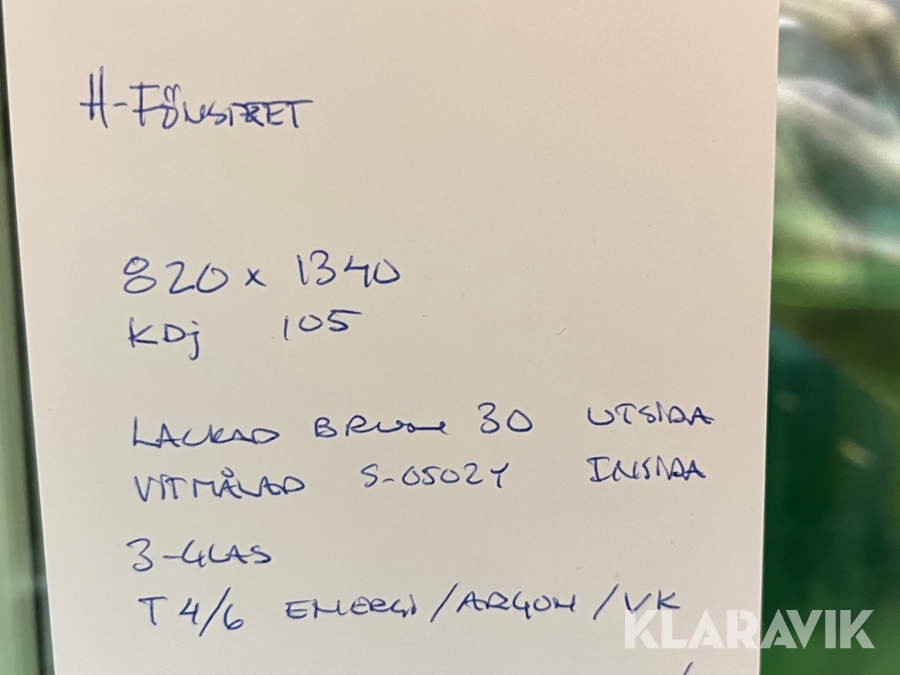 H-FÖNSTRET
820 x 1340
KDj 105
LACKAD BRUN 30 UTSIDA
VITMÅLAD S-0502Y INSIDA
3-GLAS
T 4/6 ENERGI/ARGON/VK
KLARAVIK